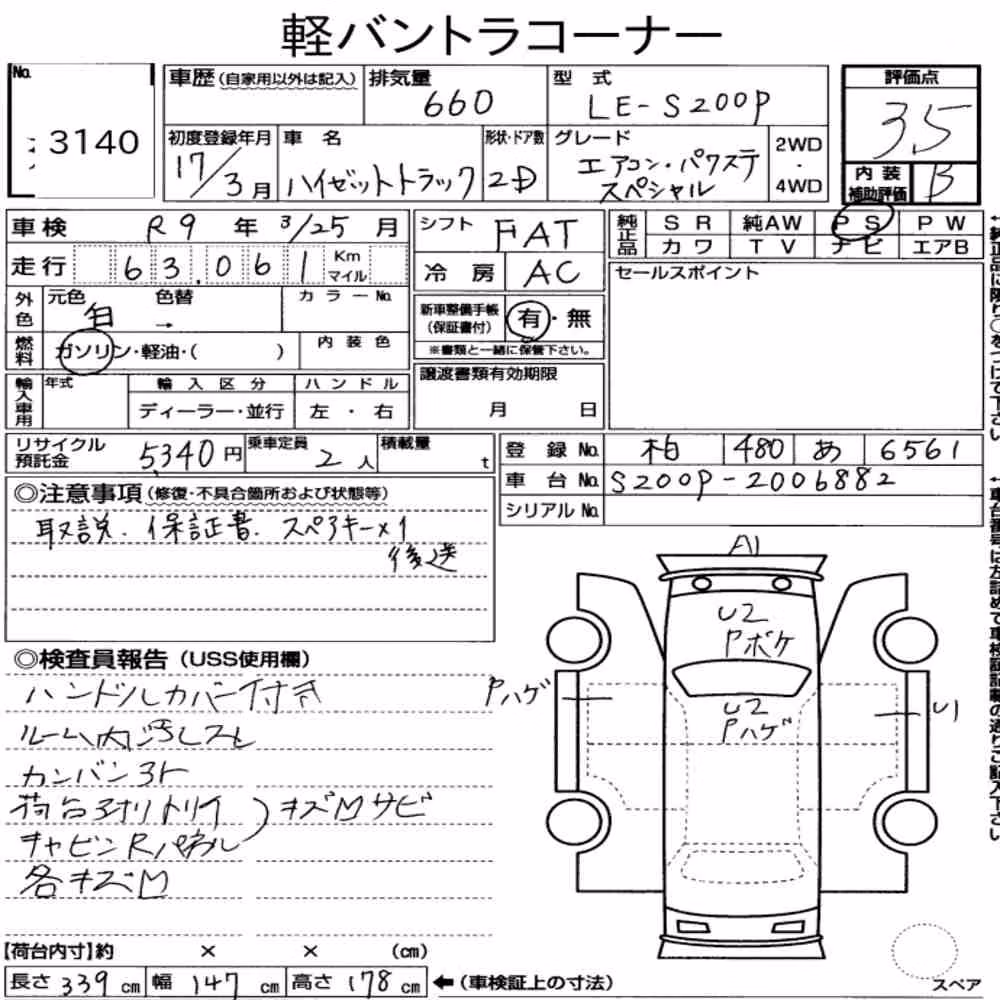 軽バントラコーナー
No. 3140
車歴 (自家用以外は記入)
排気量 660
型式 LE-S200P
評価点 3.5
初度登録年月 17/3月
車名 ハイゼットトラック
形状・ドア数 2D
グレード エアコン・パワステ スペシャル
2WD・4WD
内装補助評価 B
車検 R9年 3/25月
シフト FAT
純正品 SR 純AW PS PW
カワ TV ナビ エアB
走行 63,061 Km マイル
冷房 AC
セールスポイント
外色 元色 白 色替 → カラーNo.
新車整備手帳 (保証書付) 有・無
※書類と一緒に保管下さい。
燃料 ガソリン・軽油・( ) 内装色
譲渡書類有効期限
月 日
輸入車用 年式 輸入区分 ハンドル
ディーラー・並行 左・右
リサイクル預託金 5,340円 乗車定員 2人 積載量 t
登録No. 柏 480 あ 6561
車台No. S200P-2006882
シリアルNo.
◎注意事項 (修復・不具合箇所および状態等)
取説. 保証書. スペアキー×1
後送
◎検査員報告 (USS使用欄)
ハンドルカバー付き
ルーム内汚レスレ
カンバン3ト
荷台ヨオリトリイ
キャビンRパネル
キズMサビ
各キズM
A1
U2
Pボケ
U2
Pハゲ
Pハゲ
U1
スペア
【荷台内寸】約 × × (cm)
長さ 339 cm 幅 147 cm 高さ 178 cm ←(車検証上の寸法)
↑純正品に限り○をつけて下さい
↑車台番号は左詰めで車検証記載の通りご記入下さい